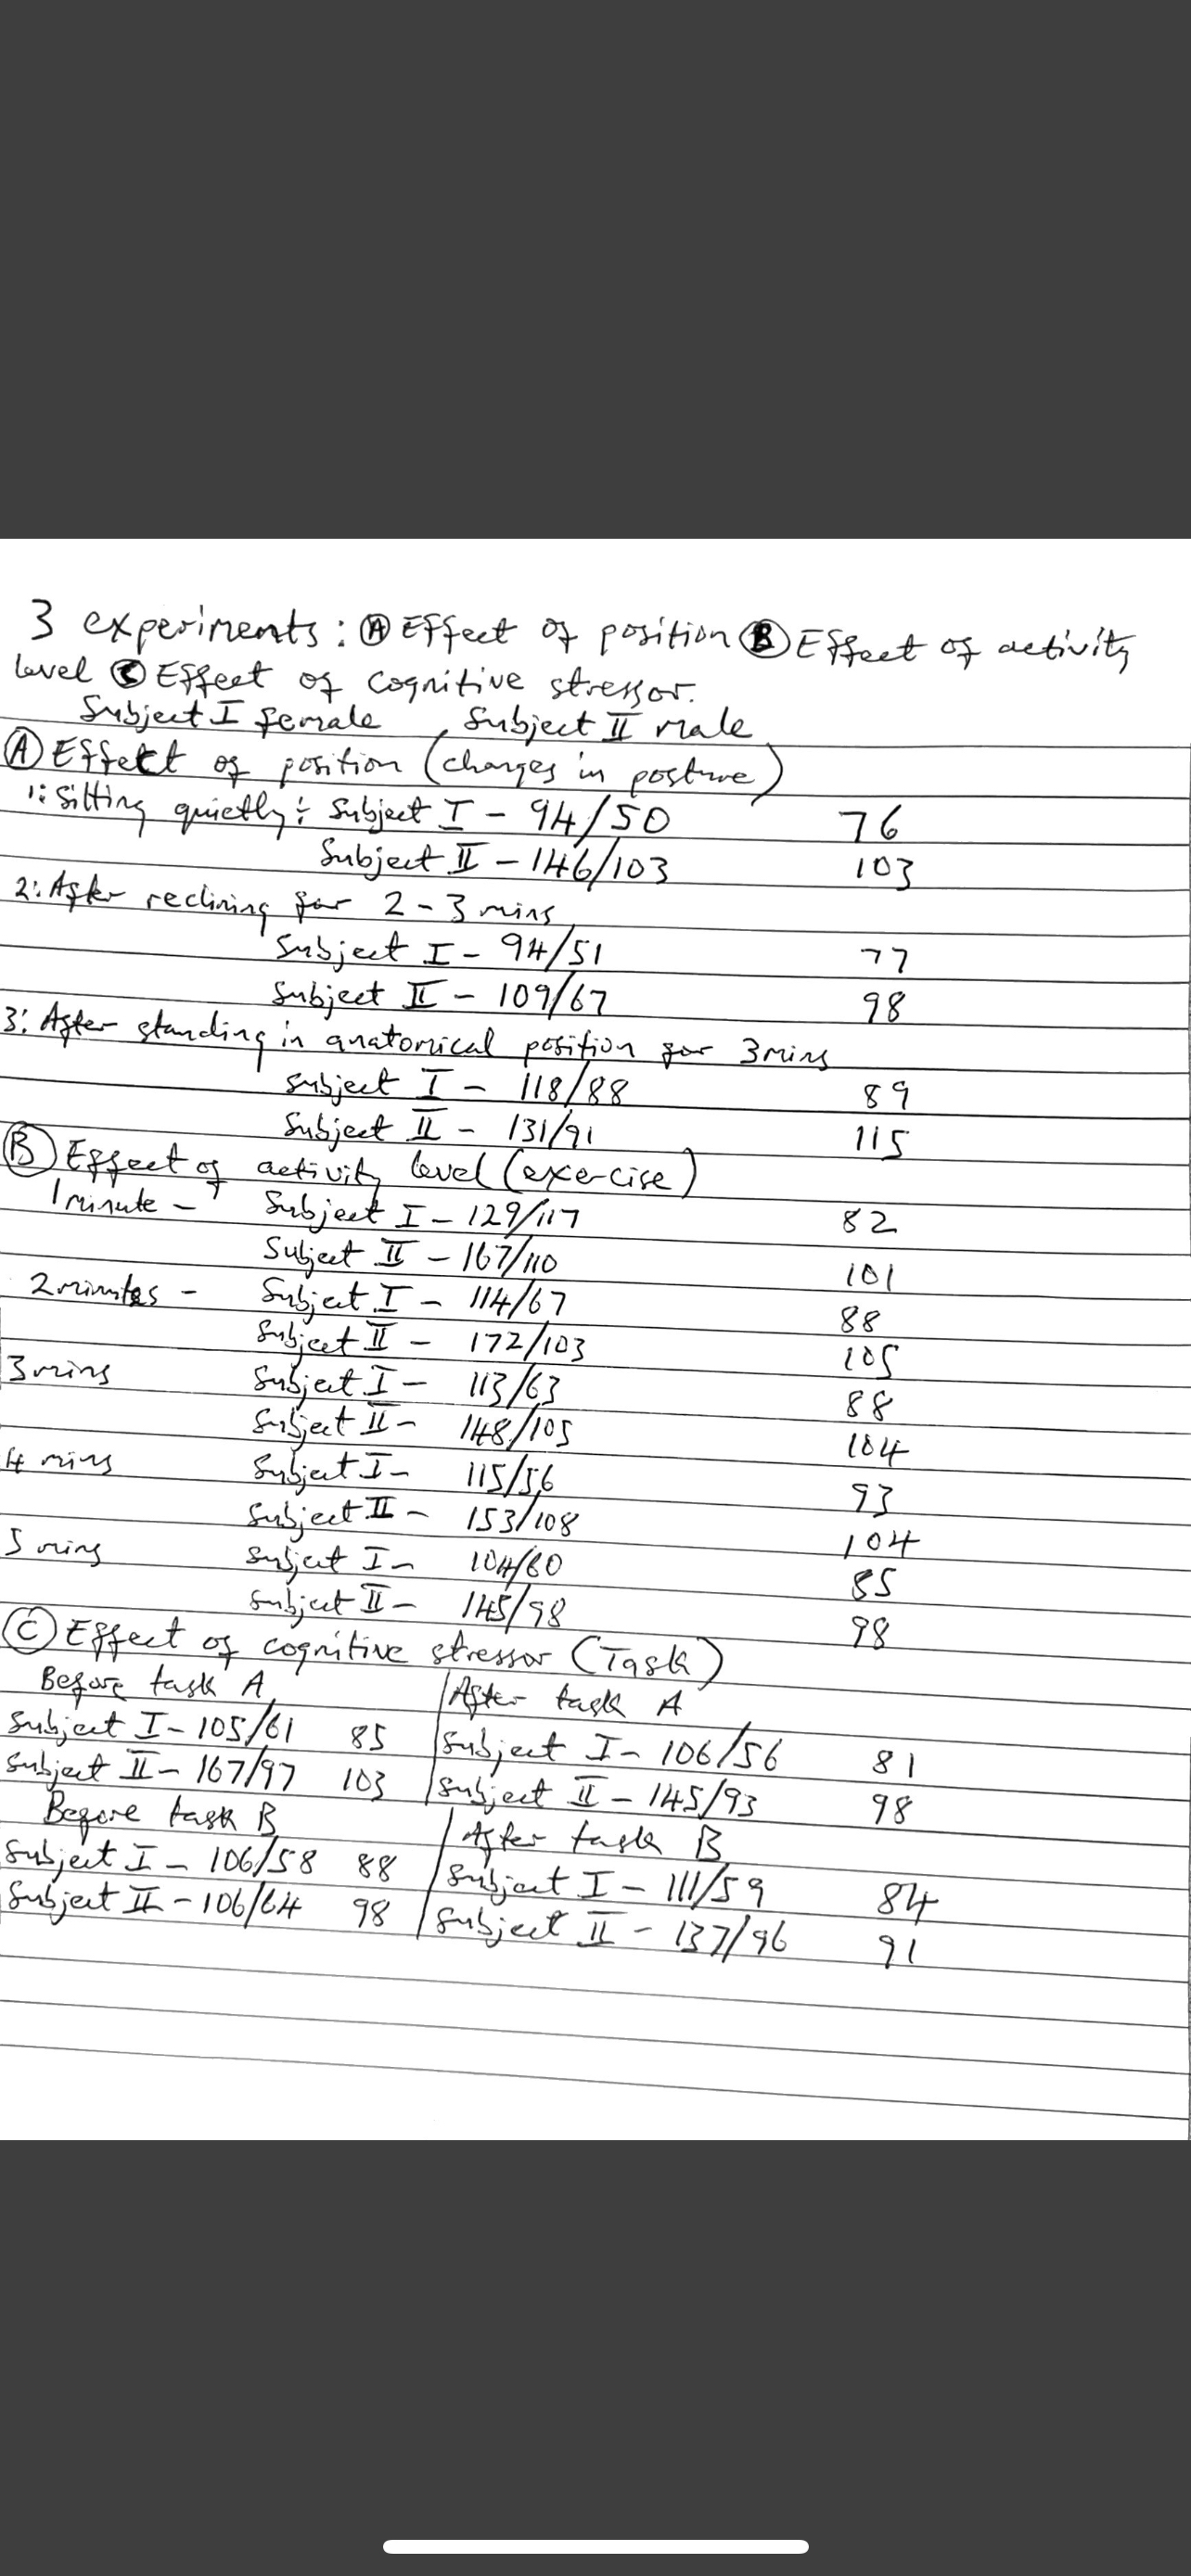 3 experiments: Ⓐ Effect of position Ⓑ Effect of activity
level Ⓒ Effect of cognitive stressor.
Subject I female Subject II male
Ⓐ Effect of position (changes in posture)
1: Sitting quietly: Subject I - 94/50 76
Subject II - 146/103 103
2: After reclining for 2-3 mins
Subject I - 94/51 77
Subject II - 109/67 98
3: After standing in anatomical position for 3 mins
Subject I - 118/88 89
Subject II - 131/91 115
Ⓑ Effect of activity level (exercise)
1 minute - Subject I - 129/117 82
Subject II - 167/110 101
2 minutes - Subject I - 114/67 88
Subject II - 172/103 105
3 mins Subject I - 113/63 88
Subject II - 148/105 104
4 mins Subject I - 115/56 93
Subject II - 153/108 104
5 mins Subject I - 85
Subject II - 145/98 98
Ⓒ Effect of cognitive stressor (Task)
Before task A After task A
Subject I - 105/61 85 Subject I - 106/56 81
Subject II - 167/97 103 Subject II - 145/93 98
Before task B After task B
Subject I - 106/58 88 Subject I - 111/59 84
Subject II - 106/64 98 Subject II - 137/96 91